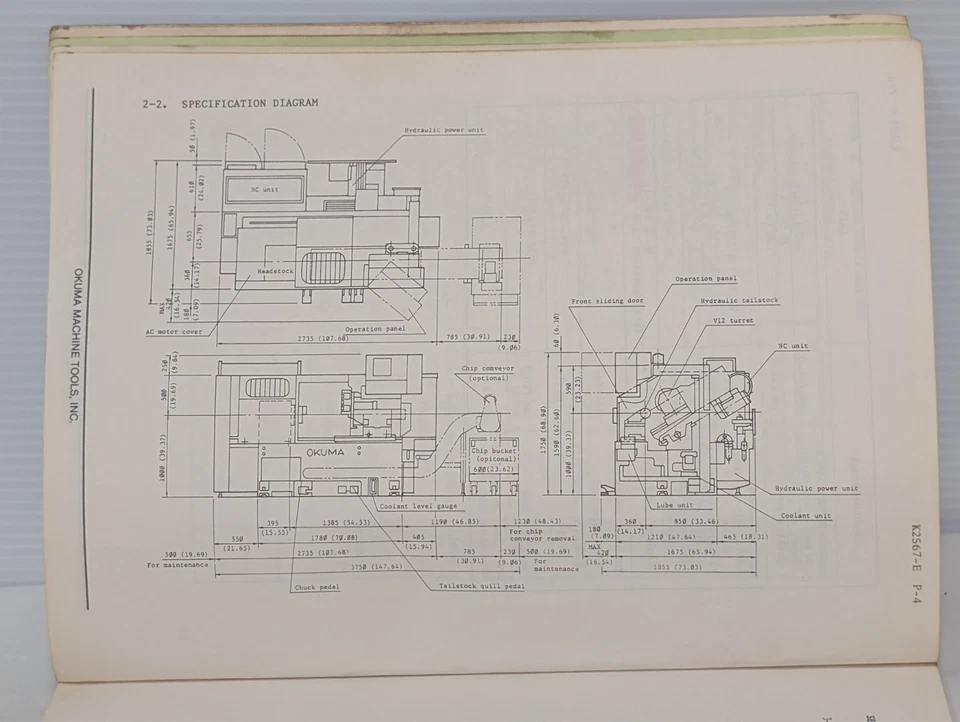 2-2. SPECIFICATION DIAGRAM
Hydraulic power unit
NC unit
Headstock
AC motor cover
Operation panel
50 (1.97)
610 (24.02)
655 (25.79)
360 (14.17)
180 (7.09)
MAX 420 (16.54)
1675 (65.94)
1855 (73.03)
2735 (107.68)
785 (30.91)
230 (9.06)
250 (9.84)
500 (19.69)
1000 (39.37)
Chip conveyor
(optional)
OKUMA
Chip bucket
(opitonal)
600(23.62)
Coolant level gauge
395 (15.55)
1385 (54.53)
1190 (46.85)
1230 (48.43)
For chip
conveyor removal
550 (21.65)
1780 (70.08)
405 (15.94)
500 (19.69)
For maintenance
2735 (107.68)
785 (30.91)
230 (9.06)
500 (19.69)
For
maintenance
3750 (147.64)
Chuck pedal
Tailstock quill pedal
Operation panel
Front sliding door
Hydraulic tailstock
V12 turret
NC unit
60
590 (23.23)
1750 (68.90)
1590 (62.60)
1000 (39.37)
Hydraulic power unit
Lube unit
Coolant unit
180 (7.09)
360 (14.17)
850 (33.46)
1210 (47.64)
465 (18.31)
MAX
420 (16.54)
1675 (65.94)
1855 (73.03)
OKUMA MACHINE TOOLS, INC.
K2567-E P-4